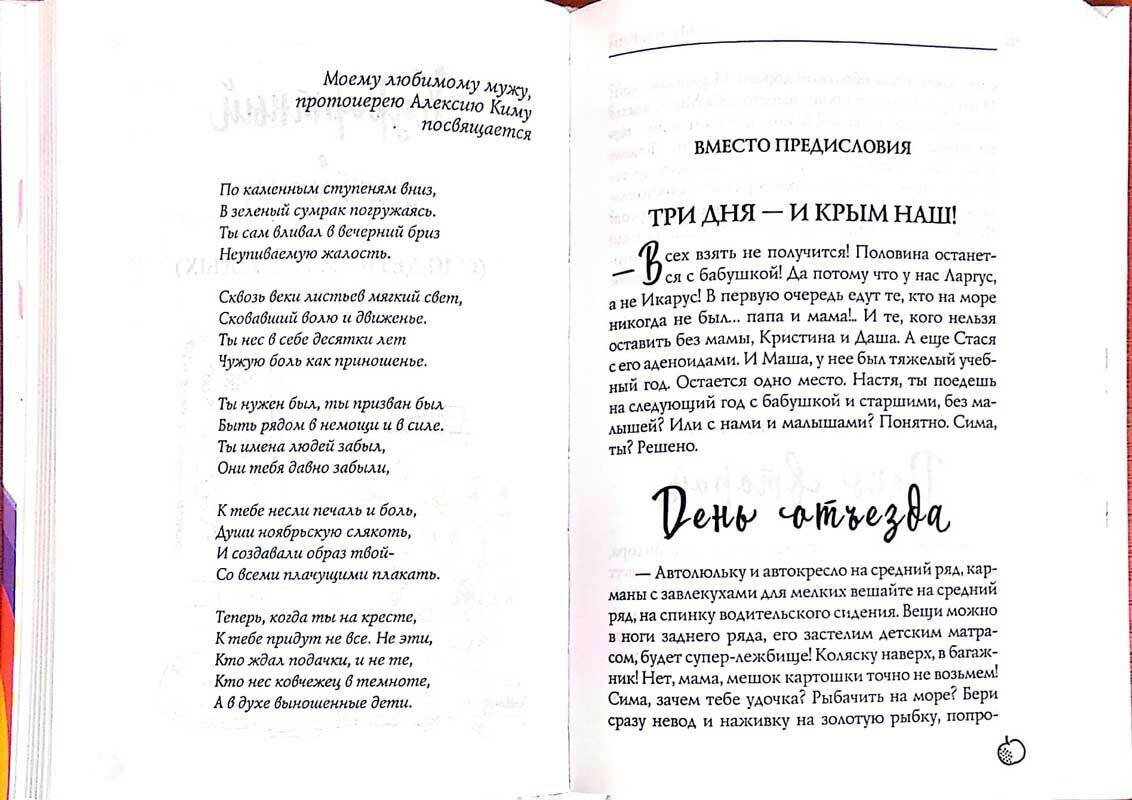 Моему любимому мужу,
протоиерею Алексию Киму
посвящается
По каменным ступеням вниз,
В зеленый сумрак погружаясь.
Ты сам вливал в вечерний бриз
Неупиваемую жалость.
Сквозь веки листьев мягкий свет,
Сковавший волю и движенье.
Ты нес в себе десятки лет
Чужую боль как приношенье.
Ты нужен был, ты призван был
Быть рядом в немощи и в силе.
Ты имена людей забыл,
Они тебя давно забыли,
К тебе несли печаль и боль,
Души ноябрьскую слякоть,
И создавали образ твой-
Со всеми плачущими плакать.
Теперь, когда ты на кресте,
К тебе придут не все. Не эти,
Кто ждал подачки, и не те,
Кто нес ковчежец в темноте,
А в духе выношенные дети.
ВМЕСТО ПРЕДИСЛОВИЯ
ТРИ ДНЯ — И КРЫМ НАШ!
— Всех взять не получится! Половина останет-
ся с бабушкой! Да потому что у нас Ларгус,
а не Икарус! В первую очередь едут те, кто на море
никогда не был... папа и мама!.. И те, кого нельзя
оставить без мамы, Кристина и Даша. А еще Стася
с его аденоидами. И Маша, у нее был тяжелый учеб-
ный год. Остается одно место. Настя, ты поедешь
на следующий год с бабушкой и старшими, без ма-
лышей? Или с нами и малышами? Понятно. Сима,
ты? Решено.
День отъезда
— Автолюльку и автокресло на средний ряд, кар-
маны с завлекухами для мелких вешайте на средний
ряд, на спинку водительского сидения. Вещи можно
в ноги заднего ряда, его застелим детским матра-
сом, будет супер-лежбище! Коляску наверх, в багаж-
ник! Нет, мама, мешок картошки точно не возьмем!
Сима, зачем тебе удочка? Рыбачить на море? Бери
сразу невод и наживку на золотую рыбку, попро-